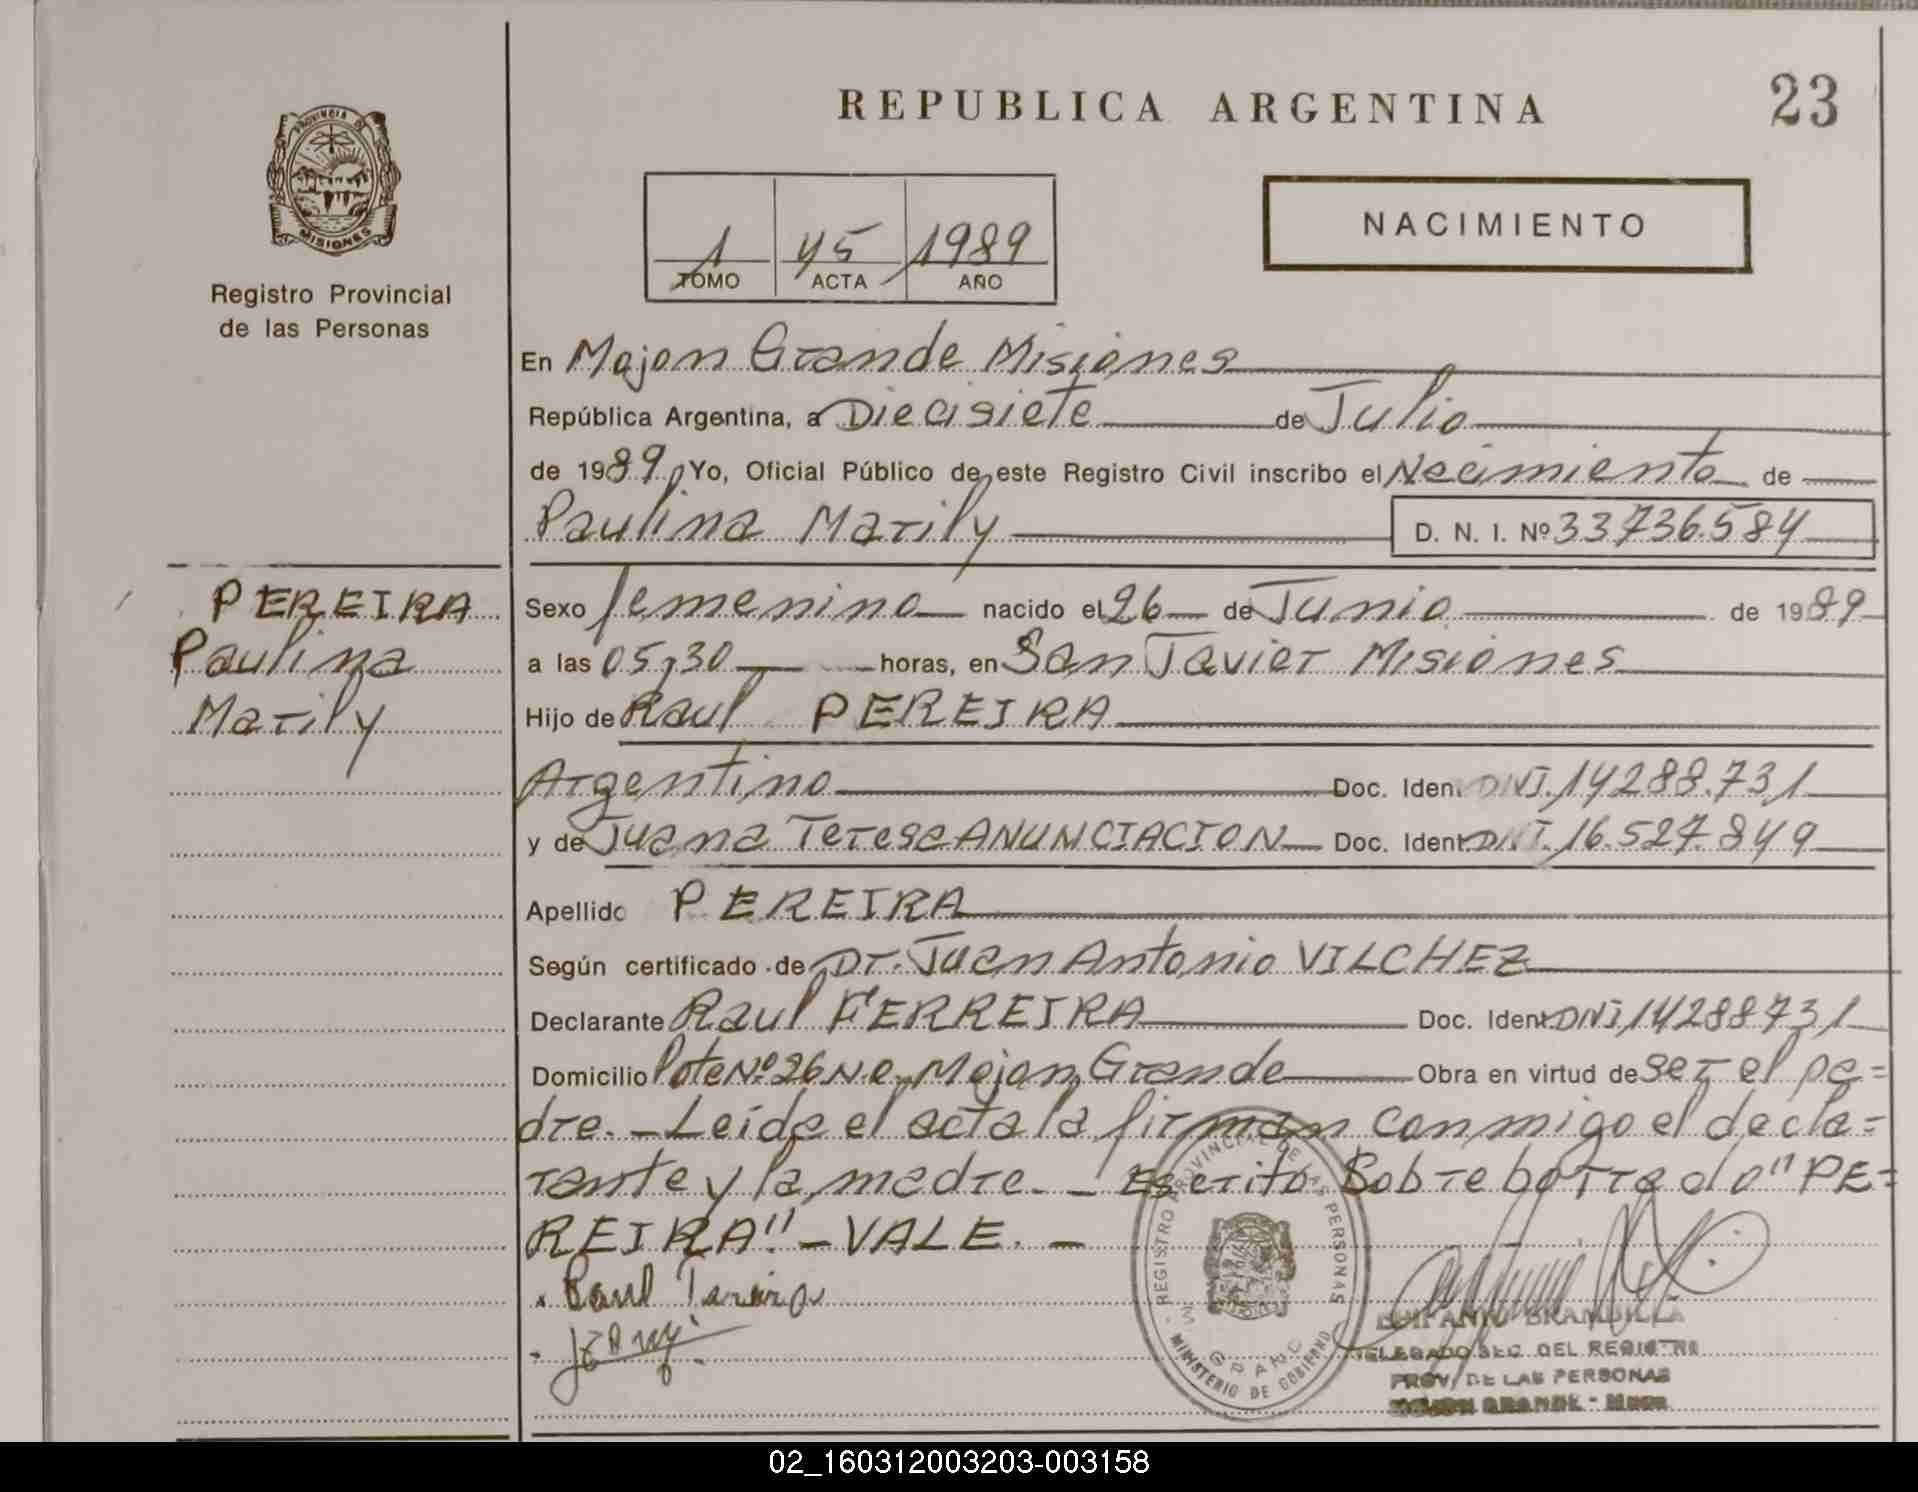 REPUBLICA ARGENTINA
23
PROVINCIA DE
MISIONES
Registro Provincial
de las Personas
1 45 1989
TOMO ACTA AÑO
NACIMIENTO
En Mojon Grande Misiones
República Argentina, a Diecisiete de Julio
de 1989 Yo, Oficial Público de este Registro Civil inscribo el Nacimiento de
Paulina Marily D. N. I. Nº 33736.584
PEREIRA
Paulina
Marily
Sexo femenino nacido el 26 de Junio de 1989
a las 05,30 horas, en San Javier Misiones
Hijo de Raul PEREIRA
Argentino Doc. Ident. DNI. 14288.731
y de Juana Teresa ANUNCIACION Doc. Ident. DNI. 16.527.849
Apellido PEREIRA
Según certificado de Dr. Juan Antonio VILCHEZ
Declarante Raul FERREIRA Doc. Ident. DNI 14288731
Domicilio Lote Nº 26 Mojon Grande Obra en virtud de ser el pa=
dre. - Leída el acta la firman conmigo el decla=
rante y la madre. - Escrito Sobreborrado "PE=
REIRA" - VALE. -
Raul
REGISTRO PROVINCIAL DE LAS PERSONAS
MINISTERIO DE GOBIERNO
BRAMBILLA
DELEGADO SEC. DEL REGISTRO
PROV. DE LAS PERSONAS
MOJON GRANDE - Mnes
02_160312003203-003158